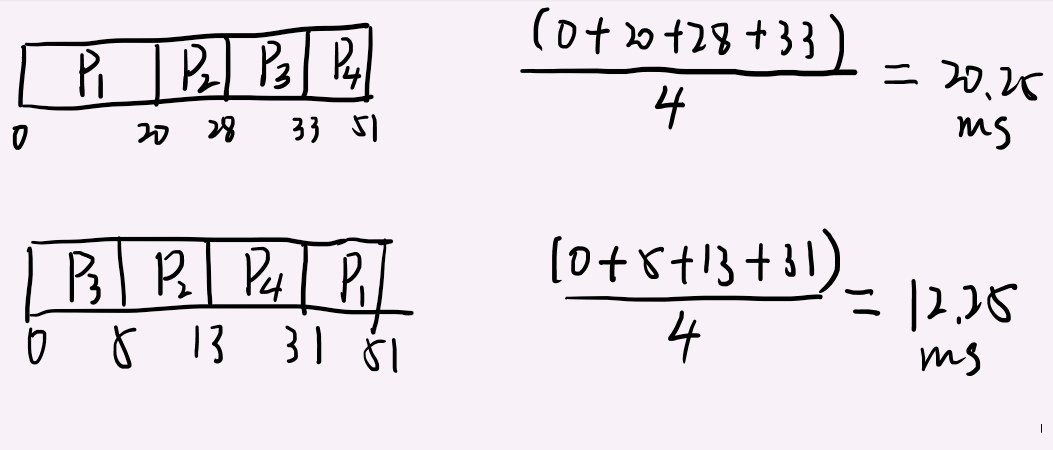 P1 P2 P3 P4
0 20 28 33 51
(0+20+28+33)
4
= 20.25
ms
P3 P2 P4 P1
0 5 13 31 51
(0+5+13+31)
4
= 12.25
ms